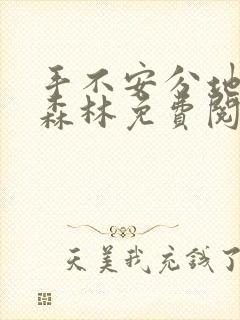 手不安分地
森林免费阅
天美我充钱了